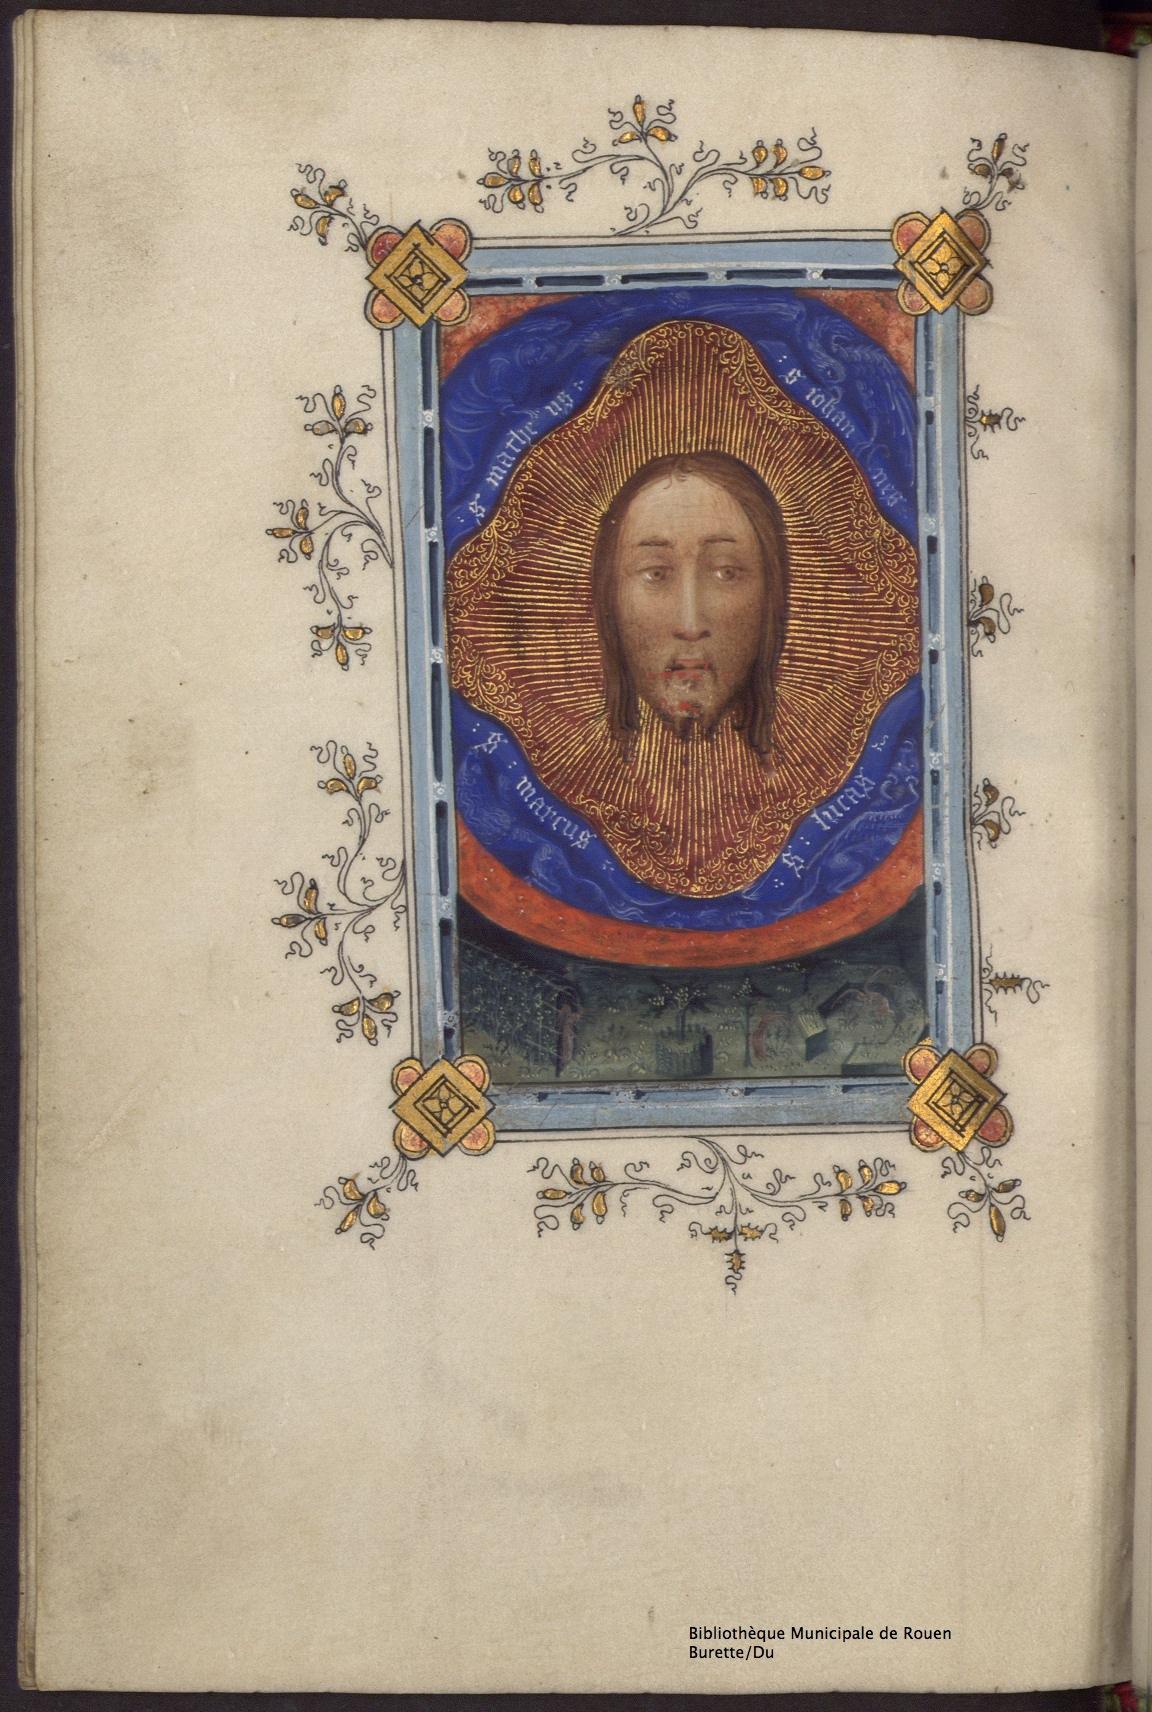 : s matheus :
: s iohannes :
: s : marcus :
s : lucas :
Bibliothèque Municipale de Rouen
Burette/Du